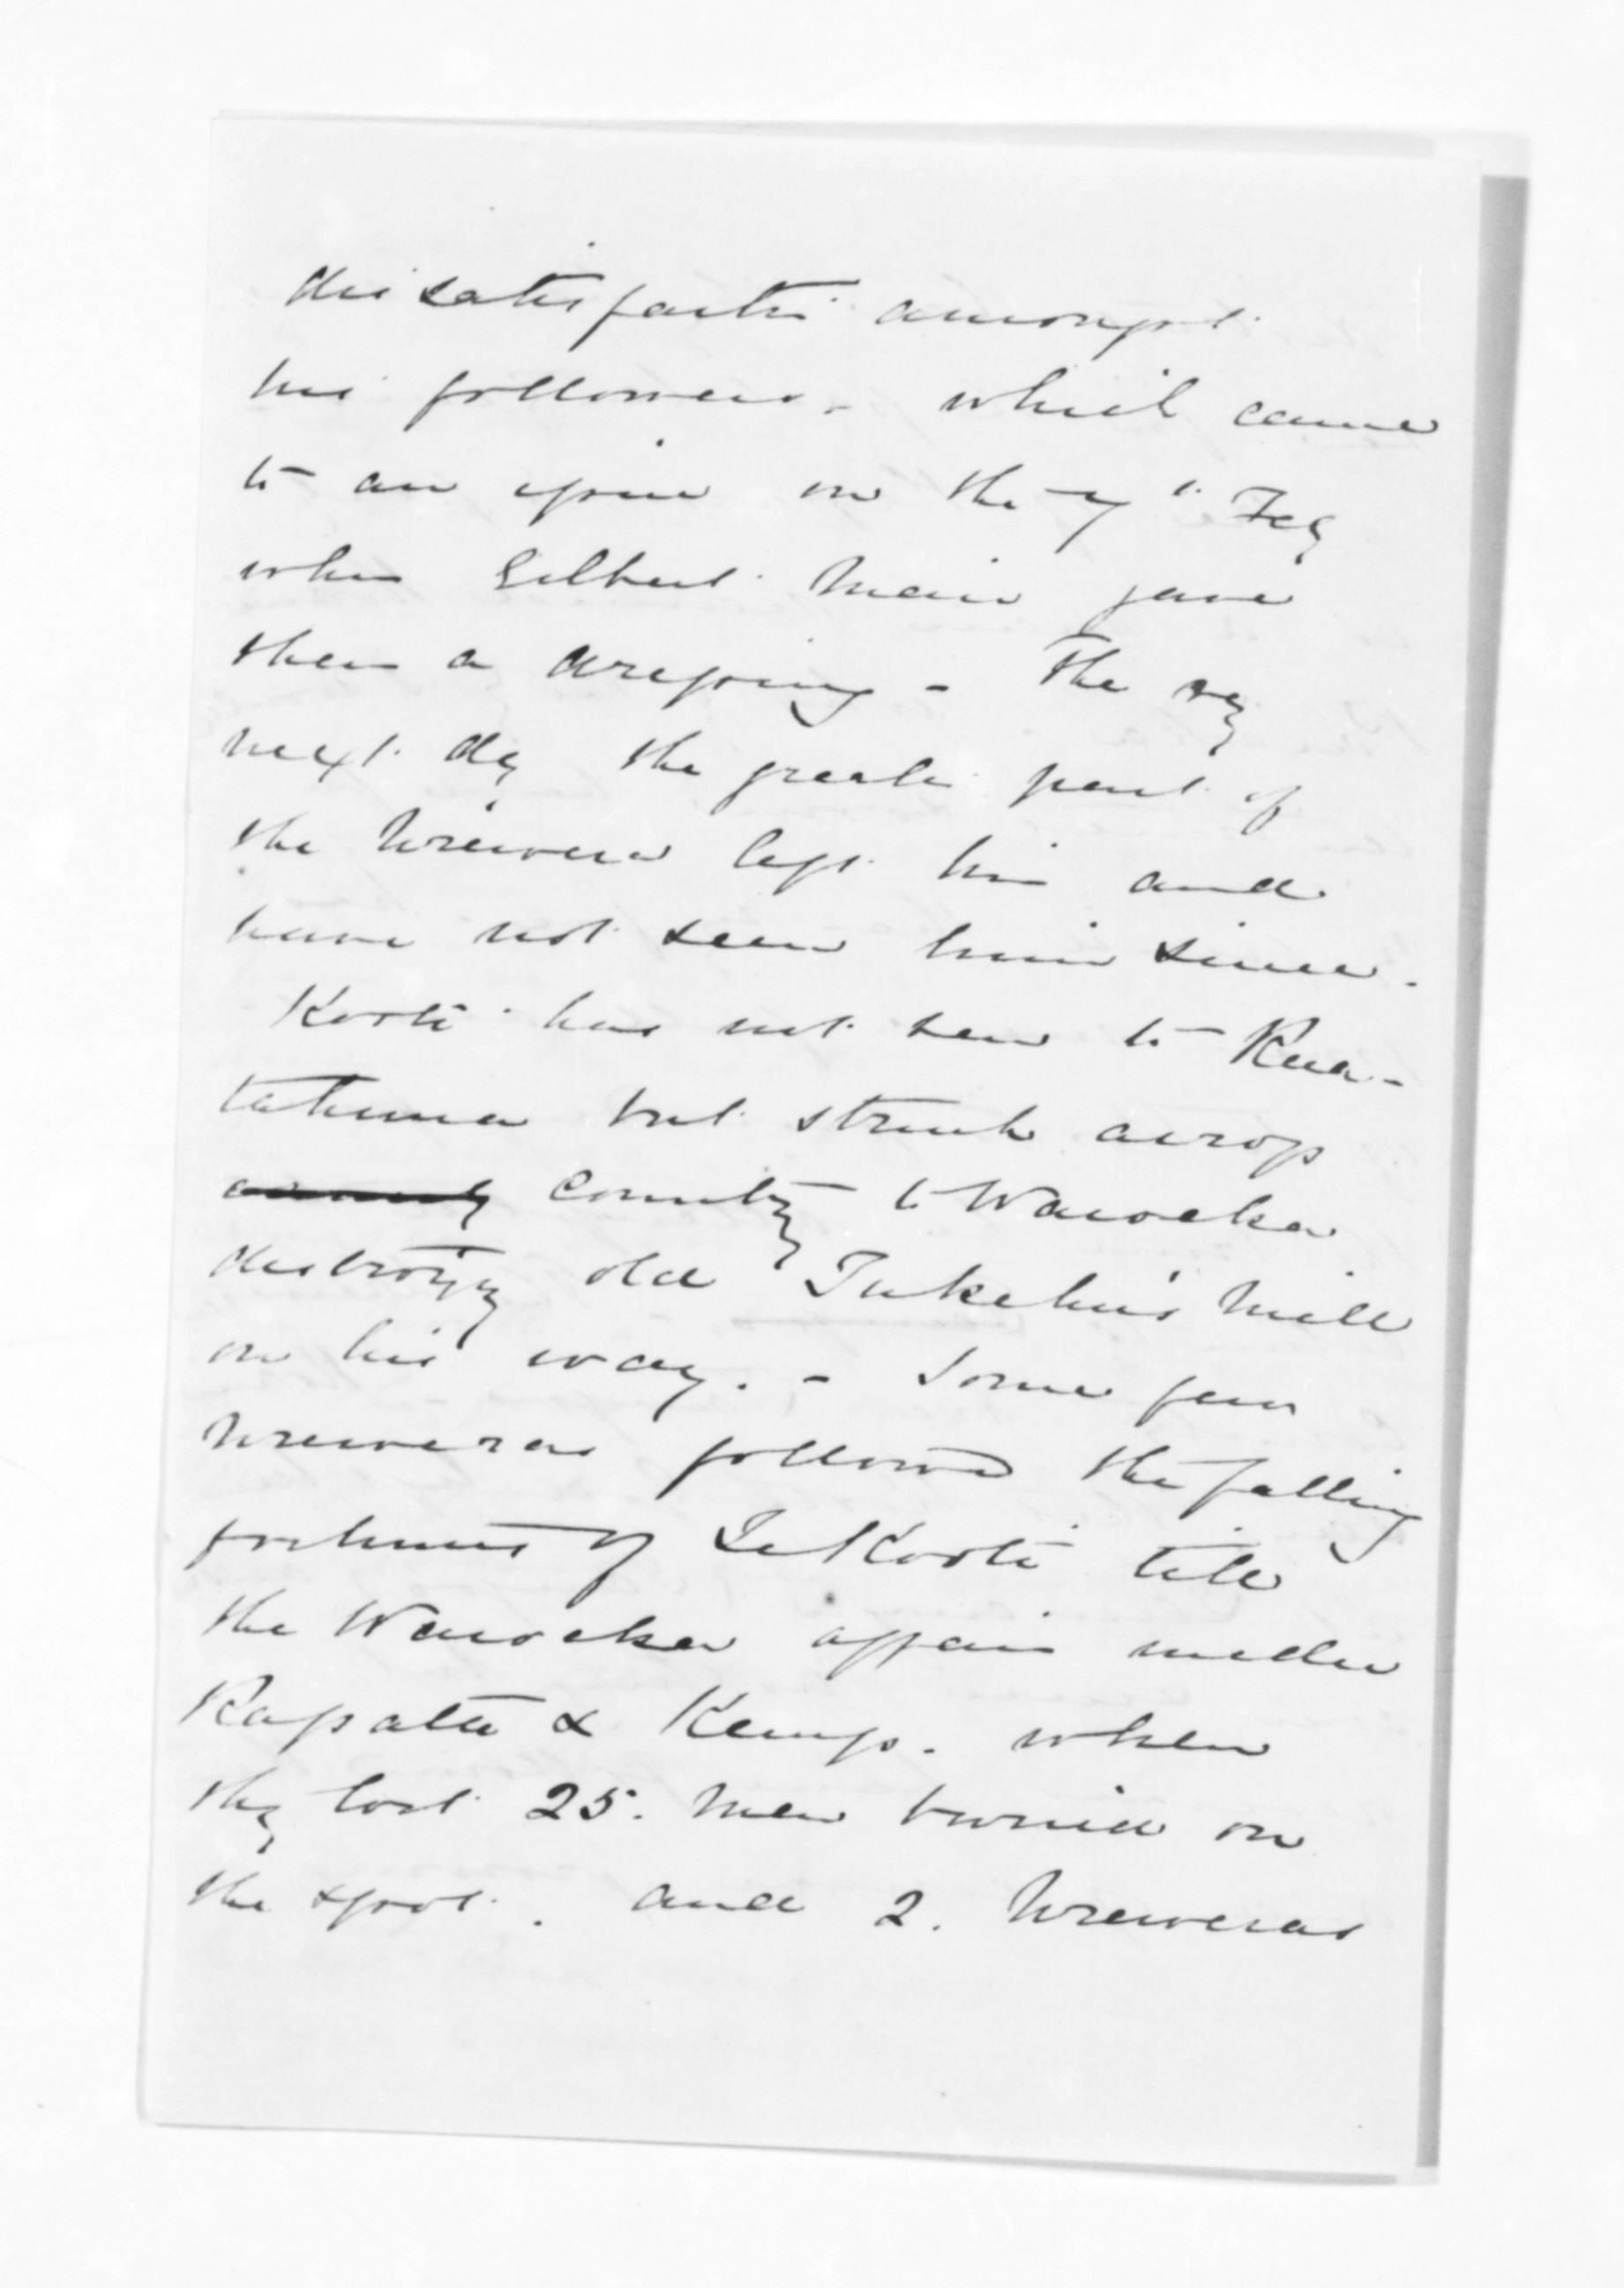 dissatisfaction amongst
his followers. which came
to an issue on the 7th Feby
when Gilbert Mair gave
them a dressing - The very
next day the greater part of
the Urewera left him and
have not seen him since.
Kooti has not been to Rua-
tahuna but struck across
country to Waioeka
destroying old Tukehu's Mill
on his way. - Some few
Ureweras followed the falling
fortunes of Te Kooti till
the Waioeka affair under
Rapata & Kemp. when
they lost 25. men buried on
the spot. and 2. Ureweras